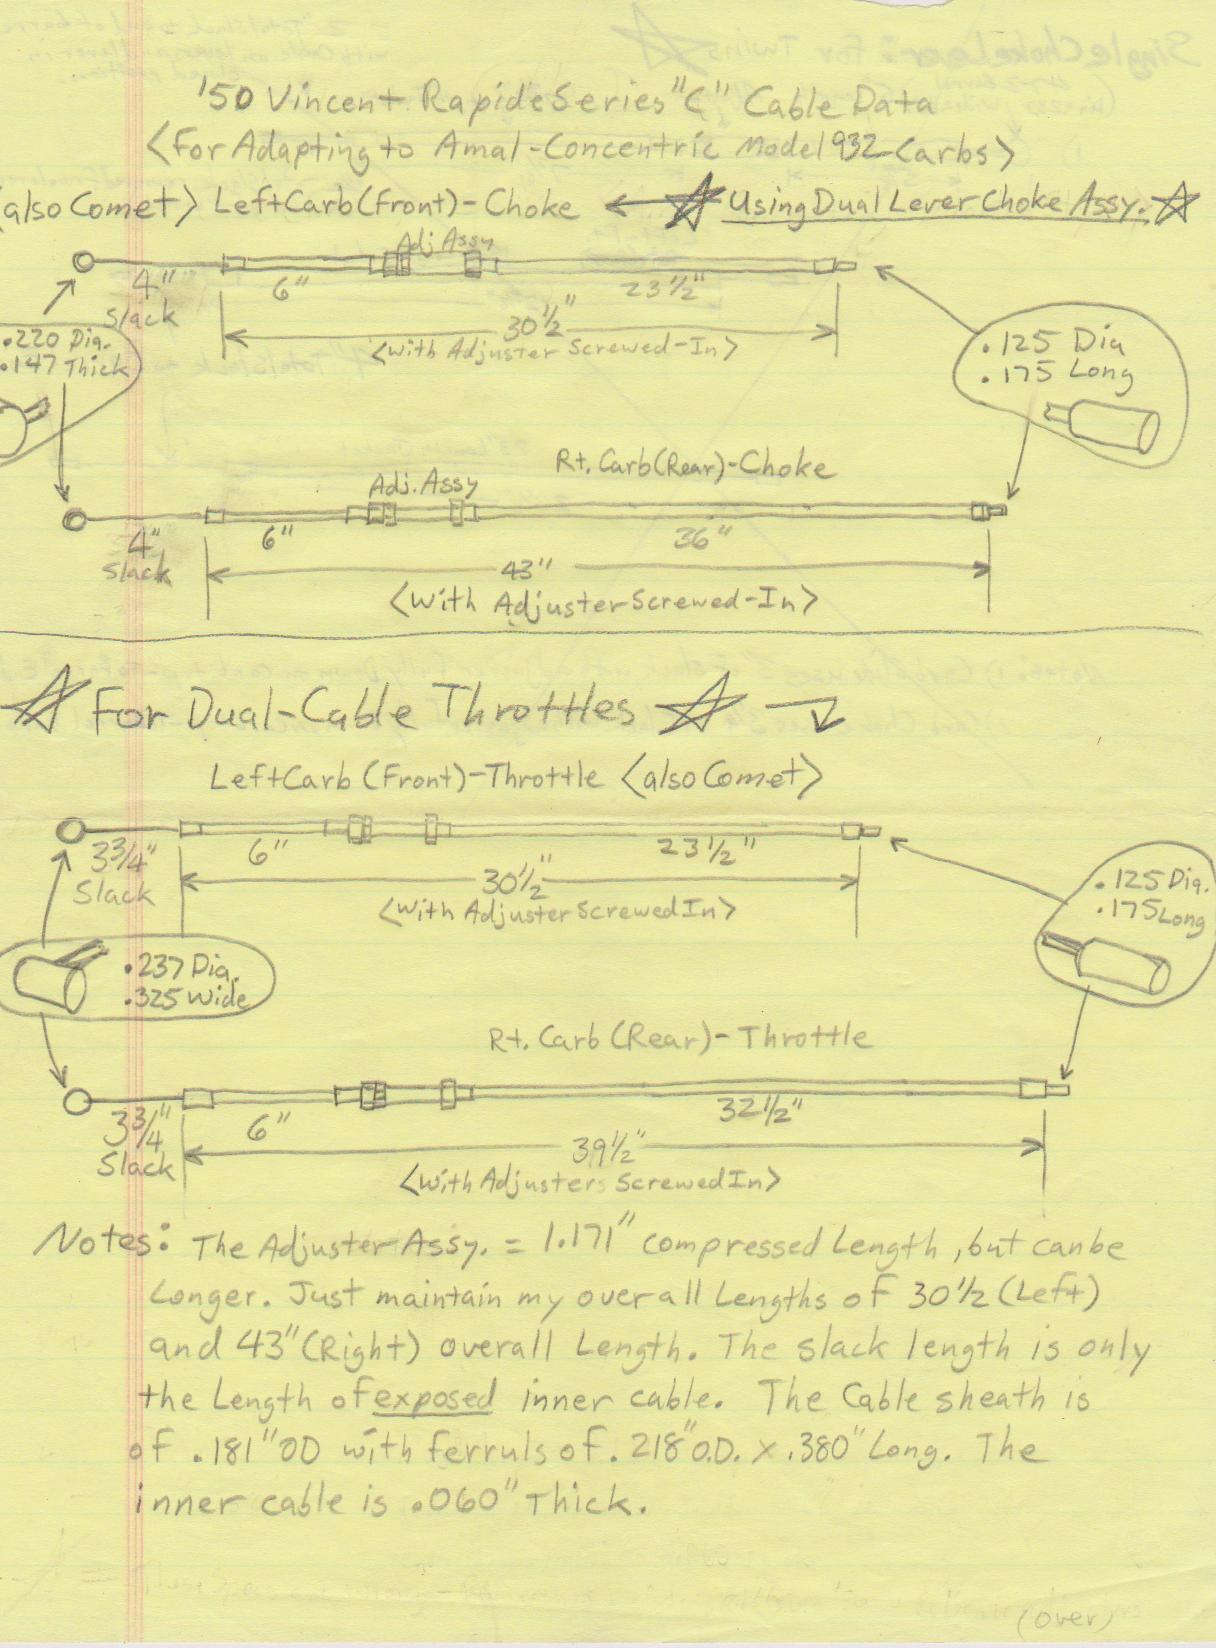 '50 Vincent Rapide Series "C" Cable Data
<For Adapting to Amal-Concentric Model 932 Carbs>
(also Comet> Left Carb (Front)-Choke ← ☆ Using Dual Lever Choke Assy. ☆
Adj Assy
4" Slack
6"
23 1/2"
30 1/2"
<With Adjuster Screwed-In>
.220 Dia.
.147 Thick
.125 Dia
.175 Long
Rt. Carb (Rear)-Choke
Adj. Assy
4" Slack
6"
36"
43"
<With Adjuster Screwed-In>
☆ For Dual-Cable Throttles ☆
Left Carb (Front)-Throttle <also Comet>
3 3/4" Slack
6"
23 1/2"
30 1/2"
<With Adjuster Screwed In>
.125 Dia.
.175 Long
.237 Dia.
.325 Wide
Rt. Carb (Rear)-Throttle
3 3/4" Slack
6"
32 1/2"
39 1/2"
<With Adjusters Screwed In>
Notes: The Adjuster Assy. = 1.171" compressed Length, but can be
Longer. Just maintain my overall Lengths of 30 1/2 (Left)
and 43" (Right) overall Length. The slack length is only
the Length of exposed inner cable. The Cable sheath is
of .181" OD with ferruls of .218" O.D. x .380" Long. The
inner cable is .060" Thick.
(over)